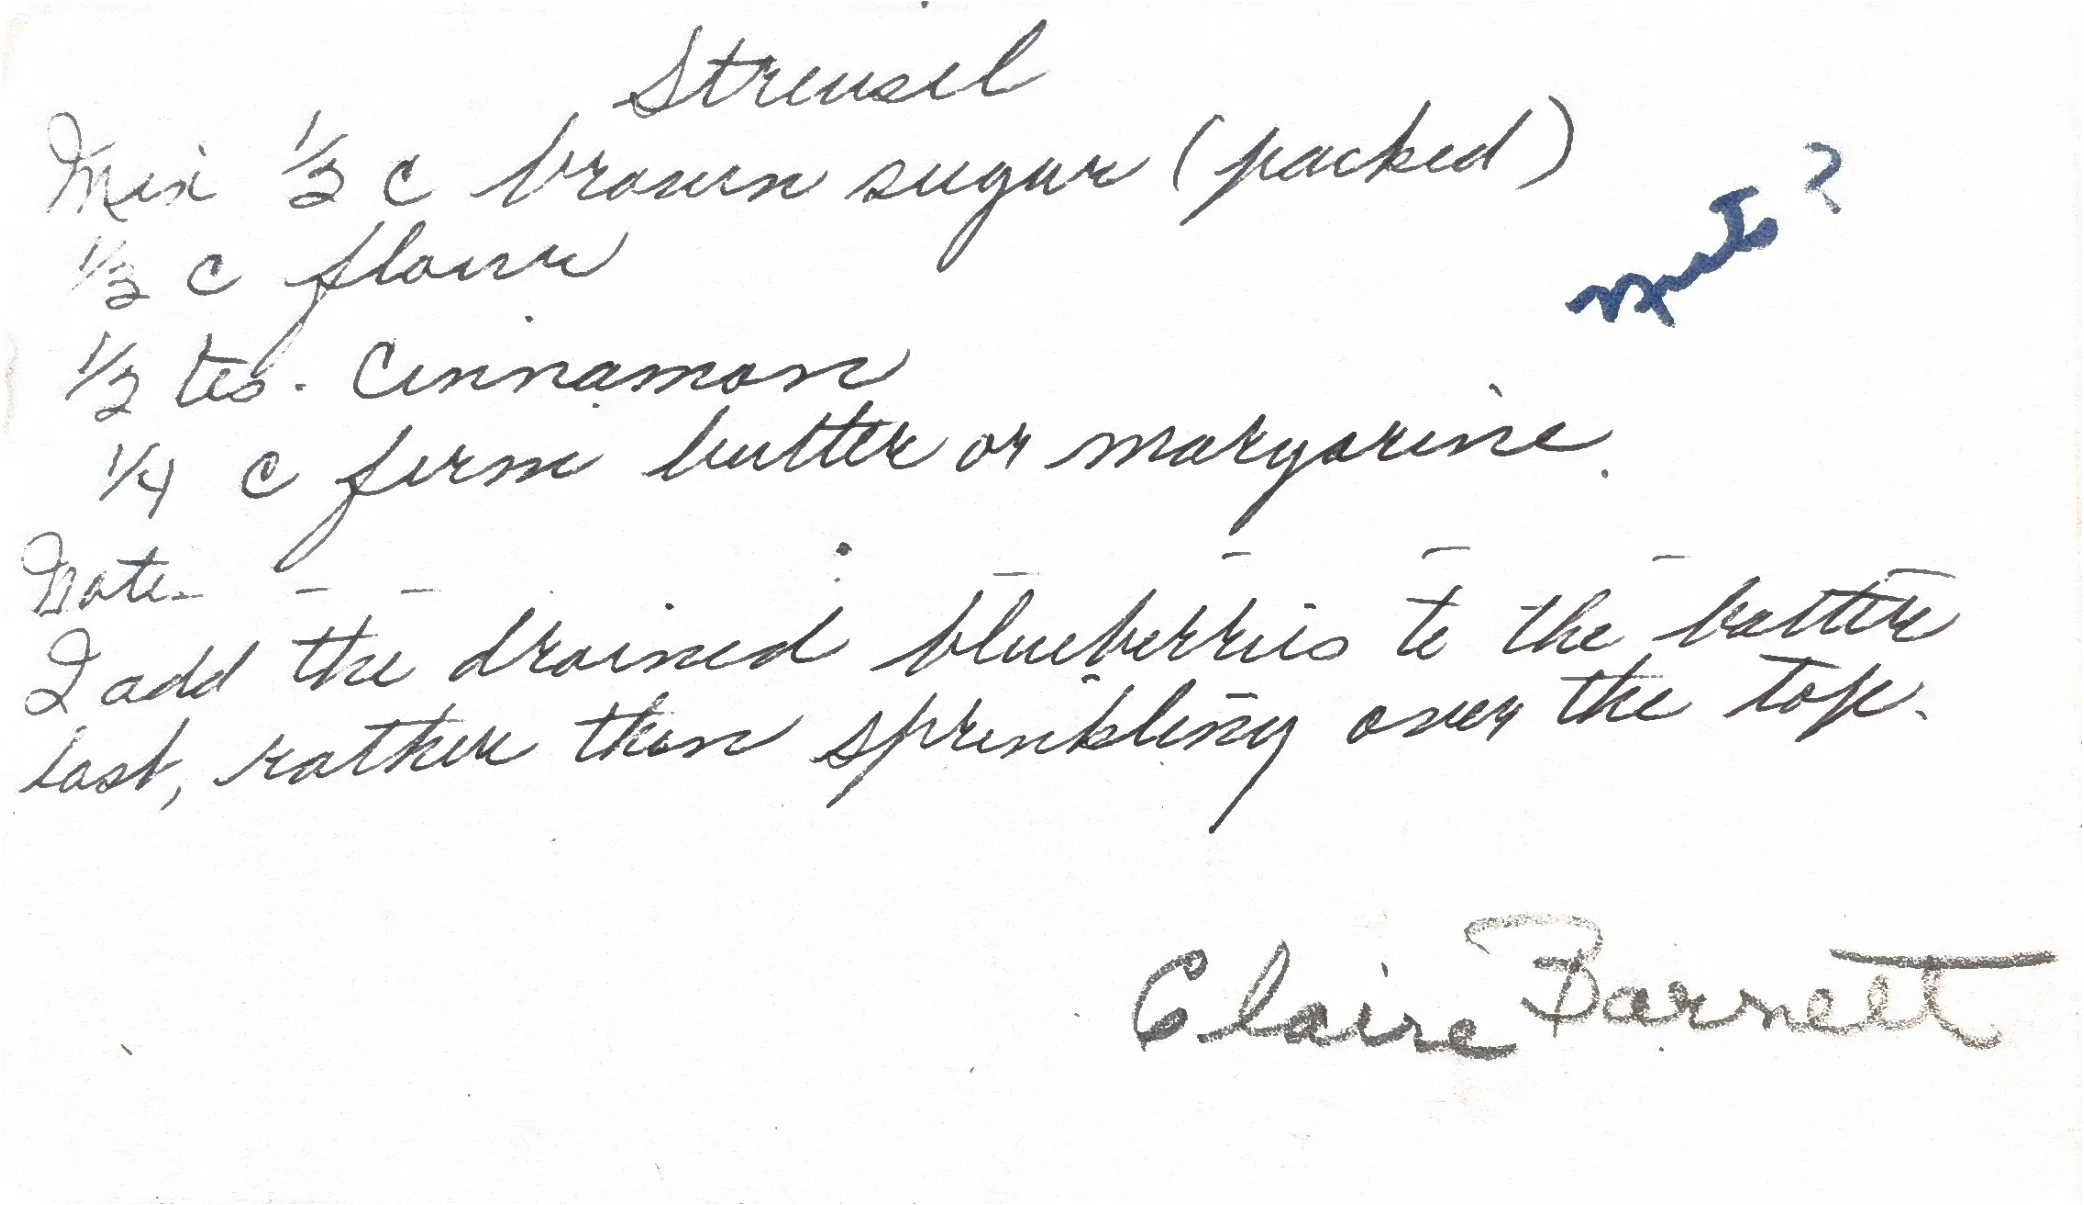 Streusel
Mix 1/2 c brown sugar (packed)
1/3 c flour
1/2 tes. Cinnamon
1/4 c firm butter or margarine.
Note-
I add the drained blueberries to the batter
last, rather than sprinkling over the top.
Claire Barnett